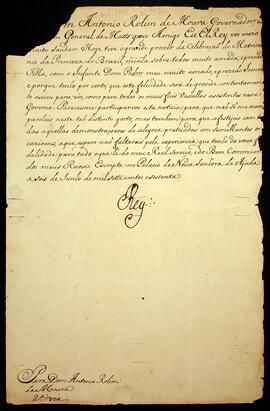 Dom Antonio Rolim de Moura Governador e
General de Mato groço Amigo Eu ElRey vos invio
muito Saudar. Hoje tive o grande prazer da Celebração do Matrimo
nio da Princeza do Brazil, minha sobre todas muito amada, e prezada
Filha, com o Infante Dom Pedro meu muito amado, e prezado Irmão
e porque tenho por certo, que esta felicidade será de grande contentamen
to assim para vós, como para todos os meus fieis Vassallos asistentes nesse
Governo: Pareceume participarvos esta noticia, para que não só me acom
panheis neste tão distinto gosto, mas tambem para que a festejeis com to
das aquellas demonstraçoens de alegria praticadas em similhantes oc
cazioens, o que espero não faltareis pela experiencia que tenho da vossa fi
delidade para tudo o que hé do meu Real Serviço, do Bem Commum
dos meus Reinos. Escripta no Palacio de Nossa Senhora da Ajuda
a seis de Junho de mil sette centos e sessenta.
Rey
Para Dom Antonio Rolim
de Moura
2ª via